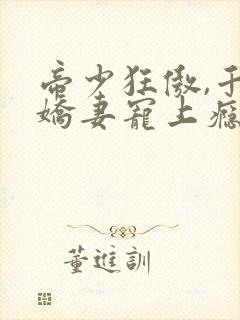 帝少狂傲,于
嬌妻寵上癮
董進訓